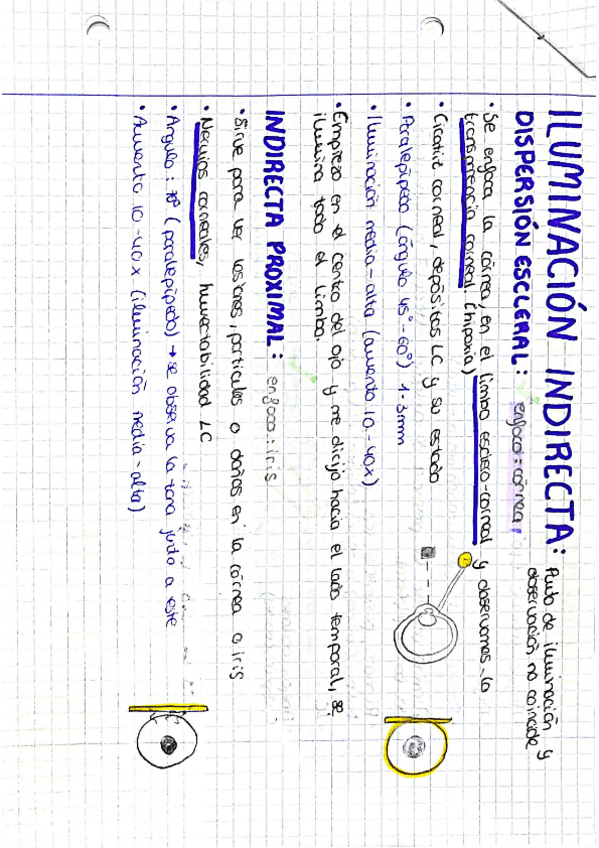 ILUMINACIÓN INDIRECTA: Punto de iluminación y
observación no coincide
DISPERSIÓN ESCLERAL: enfoca: córnea
• Se enfoca la córnea, en el limbo esclero-corneal y observamos la
transparencia corneal. (hipoxia)
• Cicatriz corneal, depósitos LC y su estado
• Paralepípedo (ángulo 45°-60°) 1-3mm
• Iluminación media-alta (aumento 10-40x)
• Empiezo en el centro del ojo y me dirijo hacia el lado temporal, se
ilumina todo el limbo.
INDIRECTA PROXIMAL: enfoca: iris
• Sirve para ver lesiones, partículas o daños en la córnea o iris
• Nervios corneales, humectabilidad LC
• Angulo: (paralepípedo) → se observa la zona junto a este
• Aumento 10-40x (iluminación media-alta)